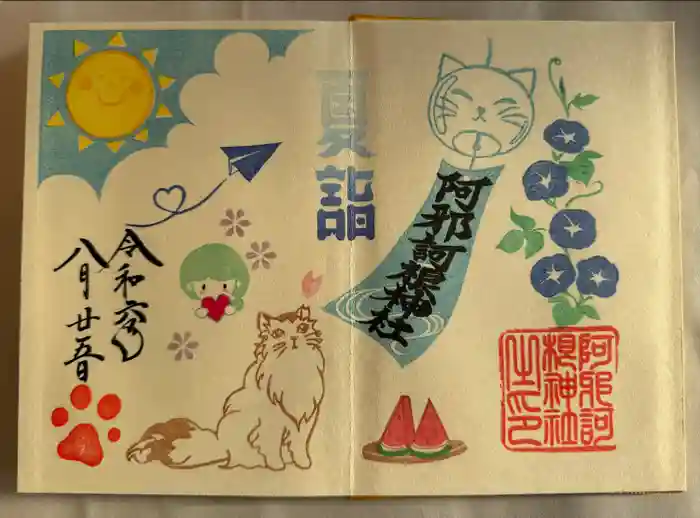 阿邪訶根神社
阿邪訶
根神社
之印
夏詣
令和六年
八月廿五日